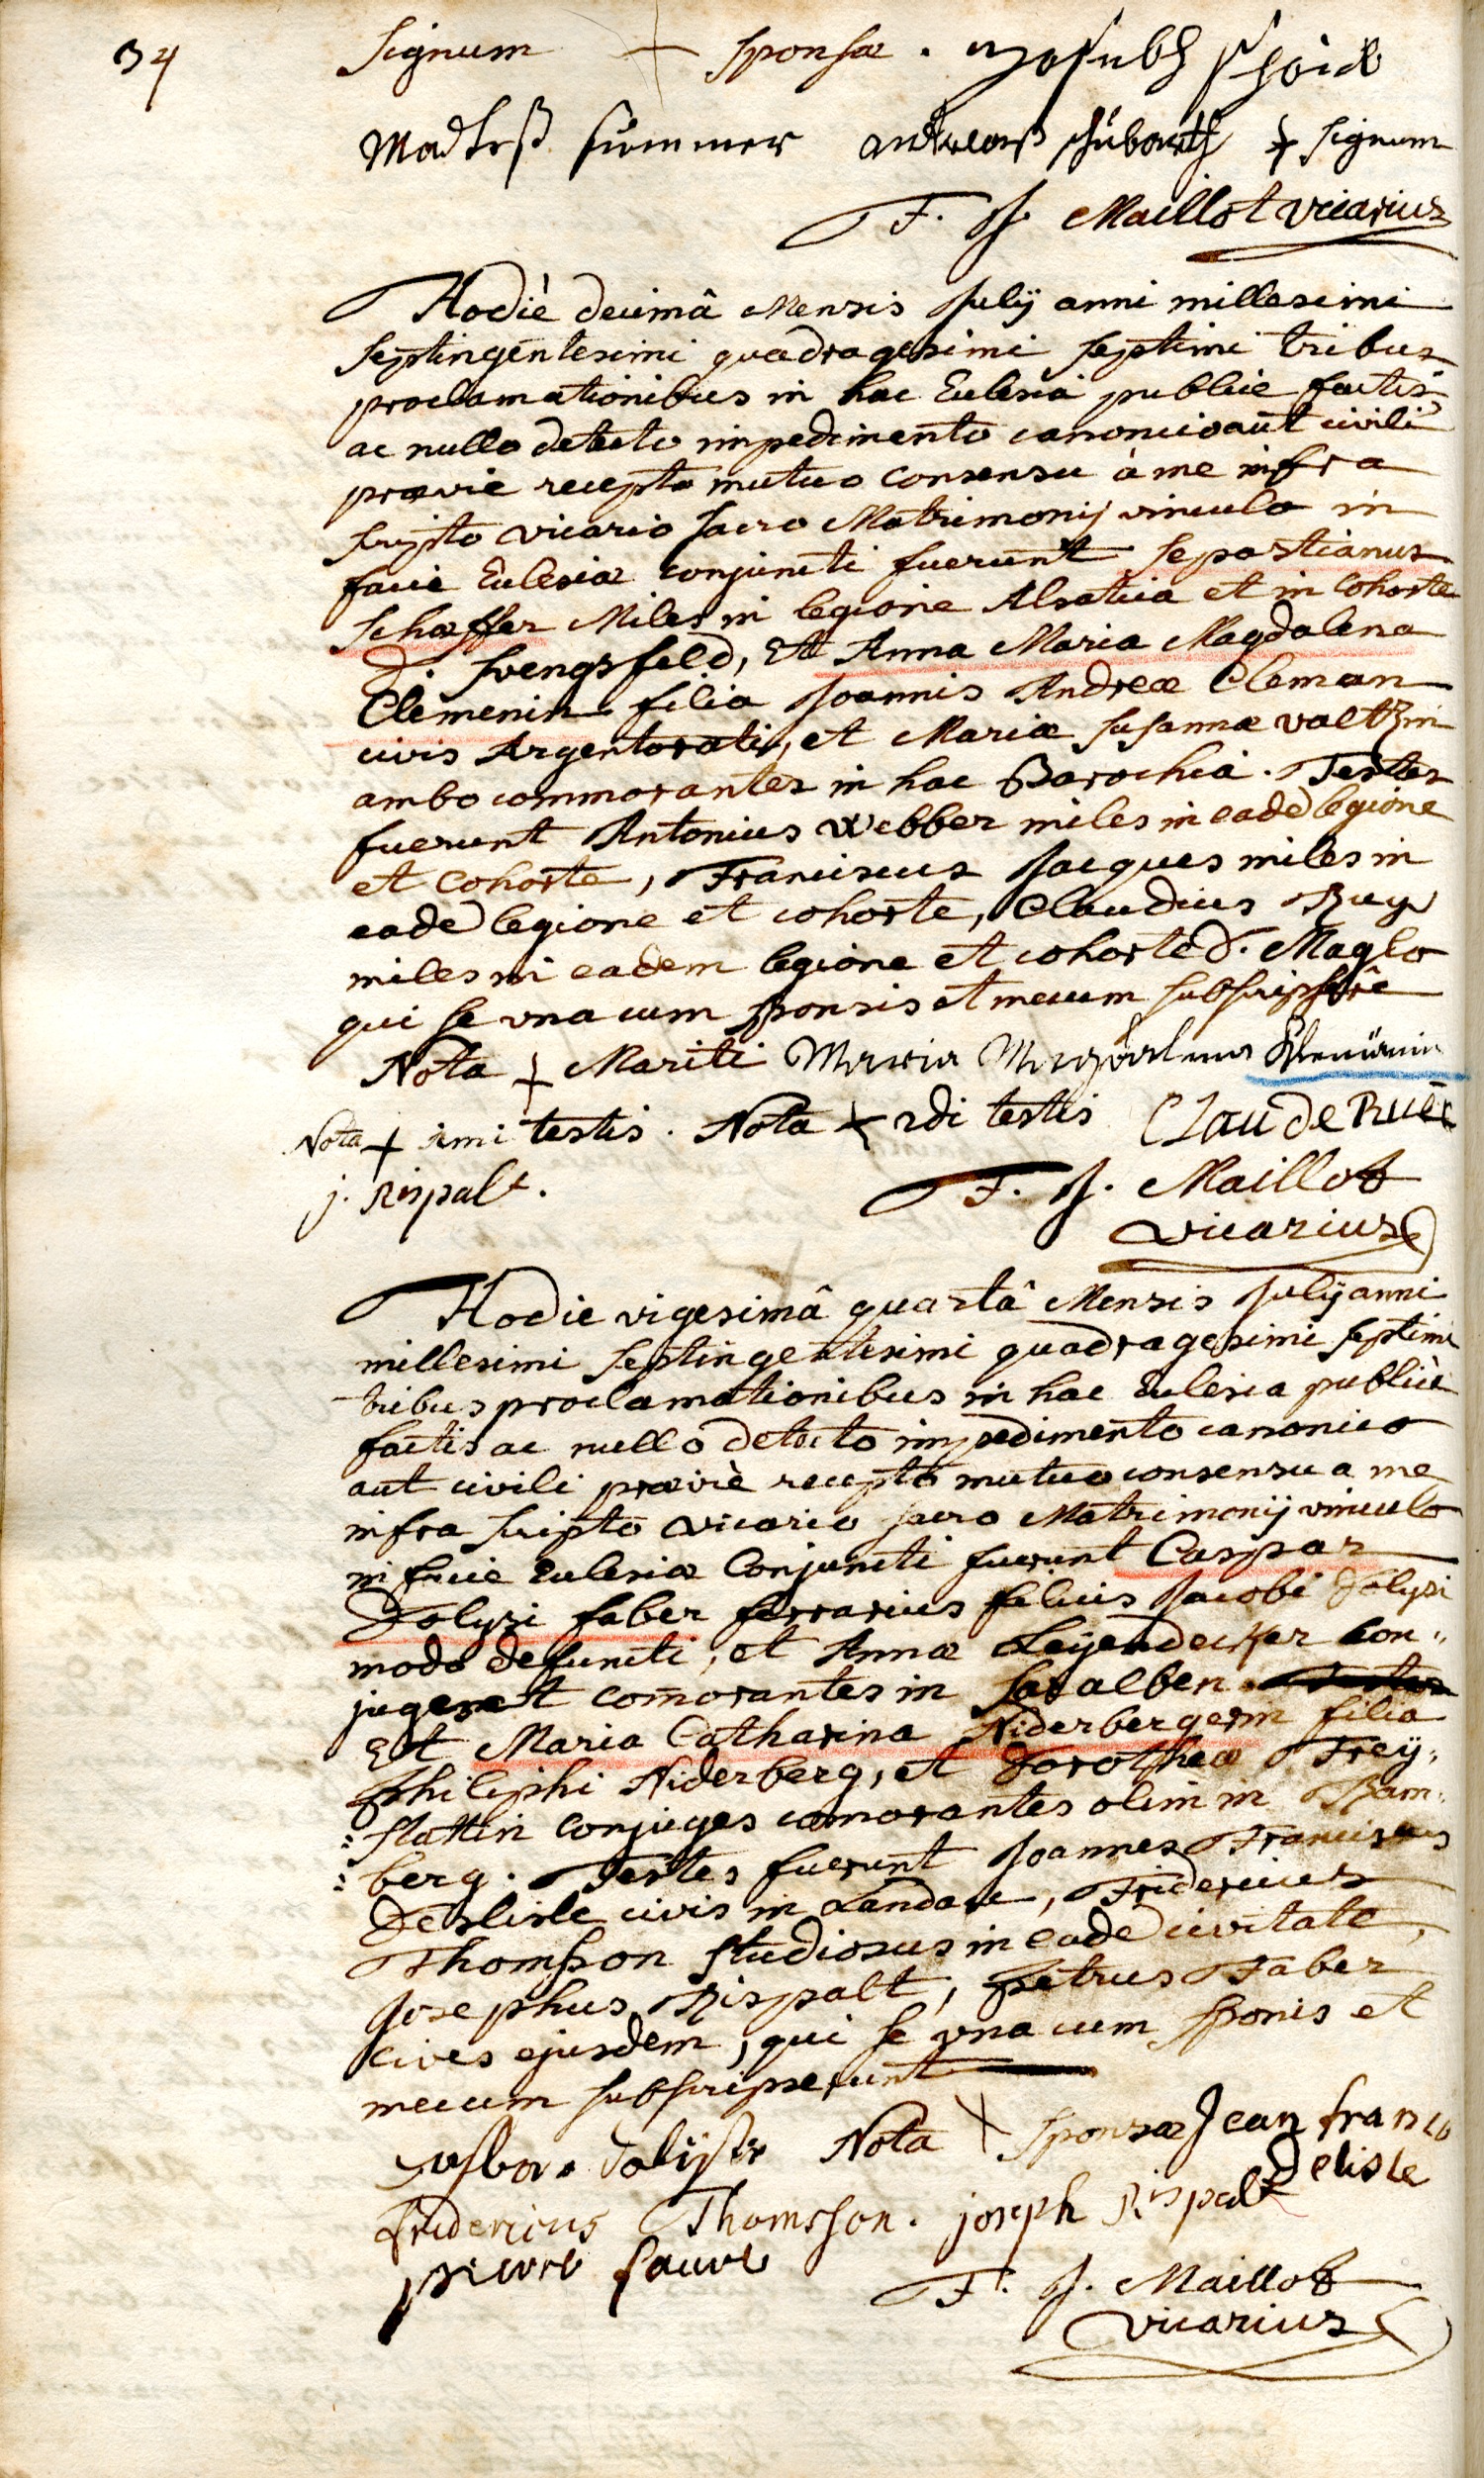 34
Signum + sponsæ . Joseph
Madheß summer andreas schübarth + signum
F. J. Maillot vicarius
Hodiè decimâ Mensis July anni millesimi
septingentesimi quadragesimi septimi tribus
proclamationibus in hac Ecclesiâ publice factis
ac nullo detecto impedimento canonico aut civili
prævie recepto mutuo consensu à me infra
scripto vicario sacro Matrimonij vinculo in
facie Ecclesiæ conjuncti fuerunt Sepastianus
Schæffer Miles in legione Alsatica et in Cohorte
D. , Et Anna Maria Magdalena
Clemenin filia Joannis Andreæ Cleman
civis Argentoratis, et Mariæ Susannæ valtzin
ambo commorantes in hac Barochiâ. Testes
fuerunt Antonius Webber miles in eadē legione
et cohorte, Franciscus Jacques miles in
eadē legione et cohorte, Claudius Ruy
miles in eadem legione et cohorte d. Maglo
qui se una cum sponsis et mecum subscripserūt
Nota + Mariti Maria Magdalena
Nota + 1mi testis . Nota + 2di testis Claude Rueÿ
j. Rispalt.
F. J. Maillot
vicarius
Hodie vigesimâ quartâ Mensis July anni
millesimi septingentesimi quadragesimi septimi
tribus proclamationibus in hac Ecclesia publicè
factis ac nullo detecto impedimento canonico
aut civili præviè recepto mutuo consensu a me
infra scripto vicario sacro Matrimonij vinculo
in facie Ecclesiæ Conjuncti fuerunt Caspar
Dolysi faber ferrarius filius Jacobi Dolysi
modo defuncti, et Annæ Leyendecker con„
juges et com̄orantes in Saralben. Testes
Et Maria Catharina Niderbergerin filia
Philiphi Niderberg, et Dorotheæ Freÿ„
stattin conjuges comorantes olim in Bam„
berg. Testes fuerunt Joannes Franciscus
Deslisle civis in Landau, Fridericus
Thomson studiosus in eadē civitate,
Josephus Rispalt, Petrus Faber
cives ejusdem, qui se una cum sponis et
mecum subscripserunt
Casbar Nota + sponsæ Jean franco
Delisle
Fridericus Thomsson. joseph Rispalt
pierre fauve
F. J. Maillot
vicarius